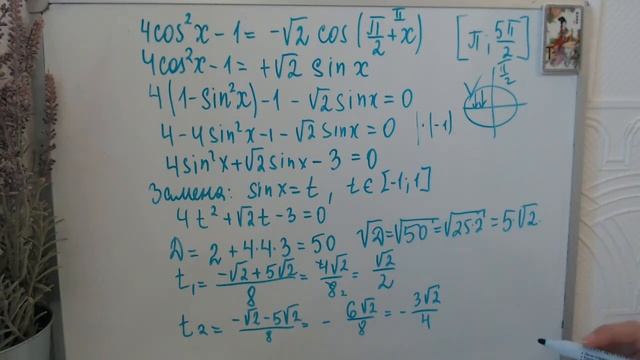 4cos²x - 1 = -√2 cos(π/2 + x) [π; 5π/2]
π
4cos²x - 1 = +√2 sinx
π/2
4(1-sin²x) - 1 - √2 sinx = 0
4 - 4sin²x - 1 - √2 sinx = 0 |·(-1)
4sin²x + √2 sinx - 3 = 0
Замена: sinx = t, t ∈ [-1; 1]
4t² + √2t - 3 = 0
D = 2 + 4·4·3 = 50 √D = √50 = √25·2 = 5√2
t₁ = (-√2 + 5√2)/8 = 4√2/8₂ = √2/2
t₂ = (-√2 - 5√2)/8 = - 6√2/8 = - 3√2/4